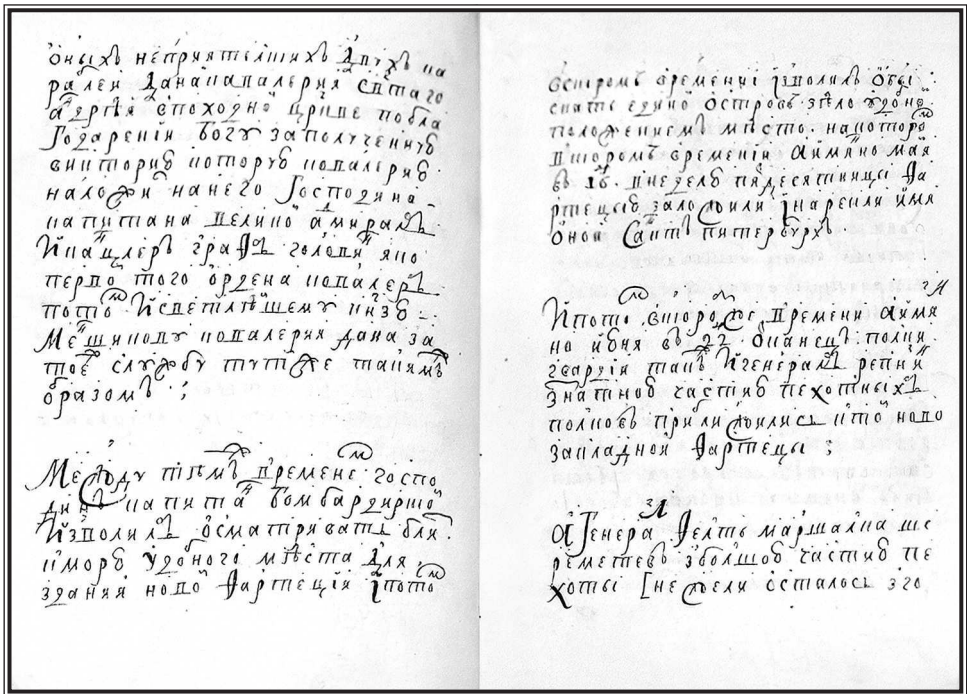 оныхъ непрїятелскихъ двухъ ка
ралей дана кавалерия святаго
андрѣя в походной црквe по бла
годаренїи богу за полученную
викторию которую кавалерию
наложи на него Господина
капитана великой адмиралъ
и канцлеръ графъ головин яко
первой того ордена кавалеръ
потом и светлѣшему кнзю
Меншикову кавалерия дана за
тое службу тут же таким
образомъ ;
Между тѣмъ времене госпо
динъ капитан бомбардирской
изволилъ осматривать бли
к морю удобного мѣста для
здания новой фартеции и потом
вскором времени изволилъ обы
скать едино островъ зѣло удобно
положениемъ мѣсто на котором
вскором времени а имянно мая
въ 16 в неделю пядесятницы фа
ртецыю заложили и нарекли имя
оной Санктъ питербурхъ
И потом вскором же времени а имя
но июня въ 22 полки
гвардии такъ и генералъ репнин
знатною частию пехотныхъ
полковъ приближились к той ново
закладной фартецы ;
А Генерал фелть маршалка ше
реметевъ з болшою частию пе
хоты [нежели осталось з го